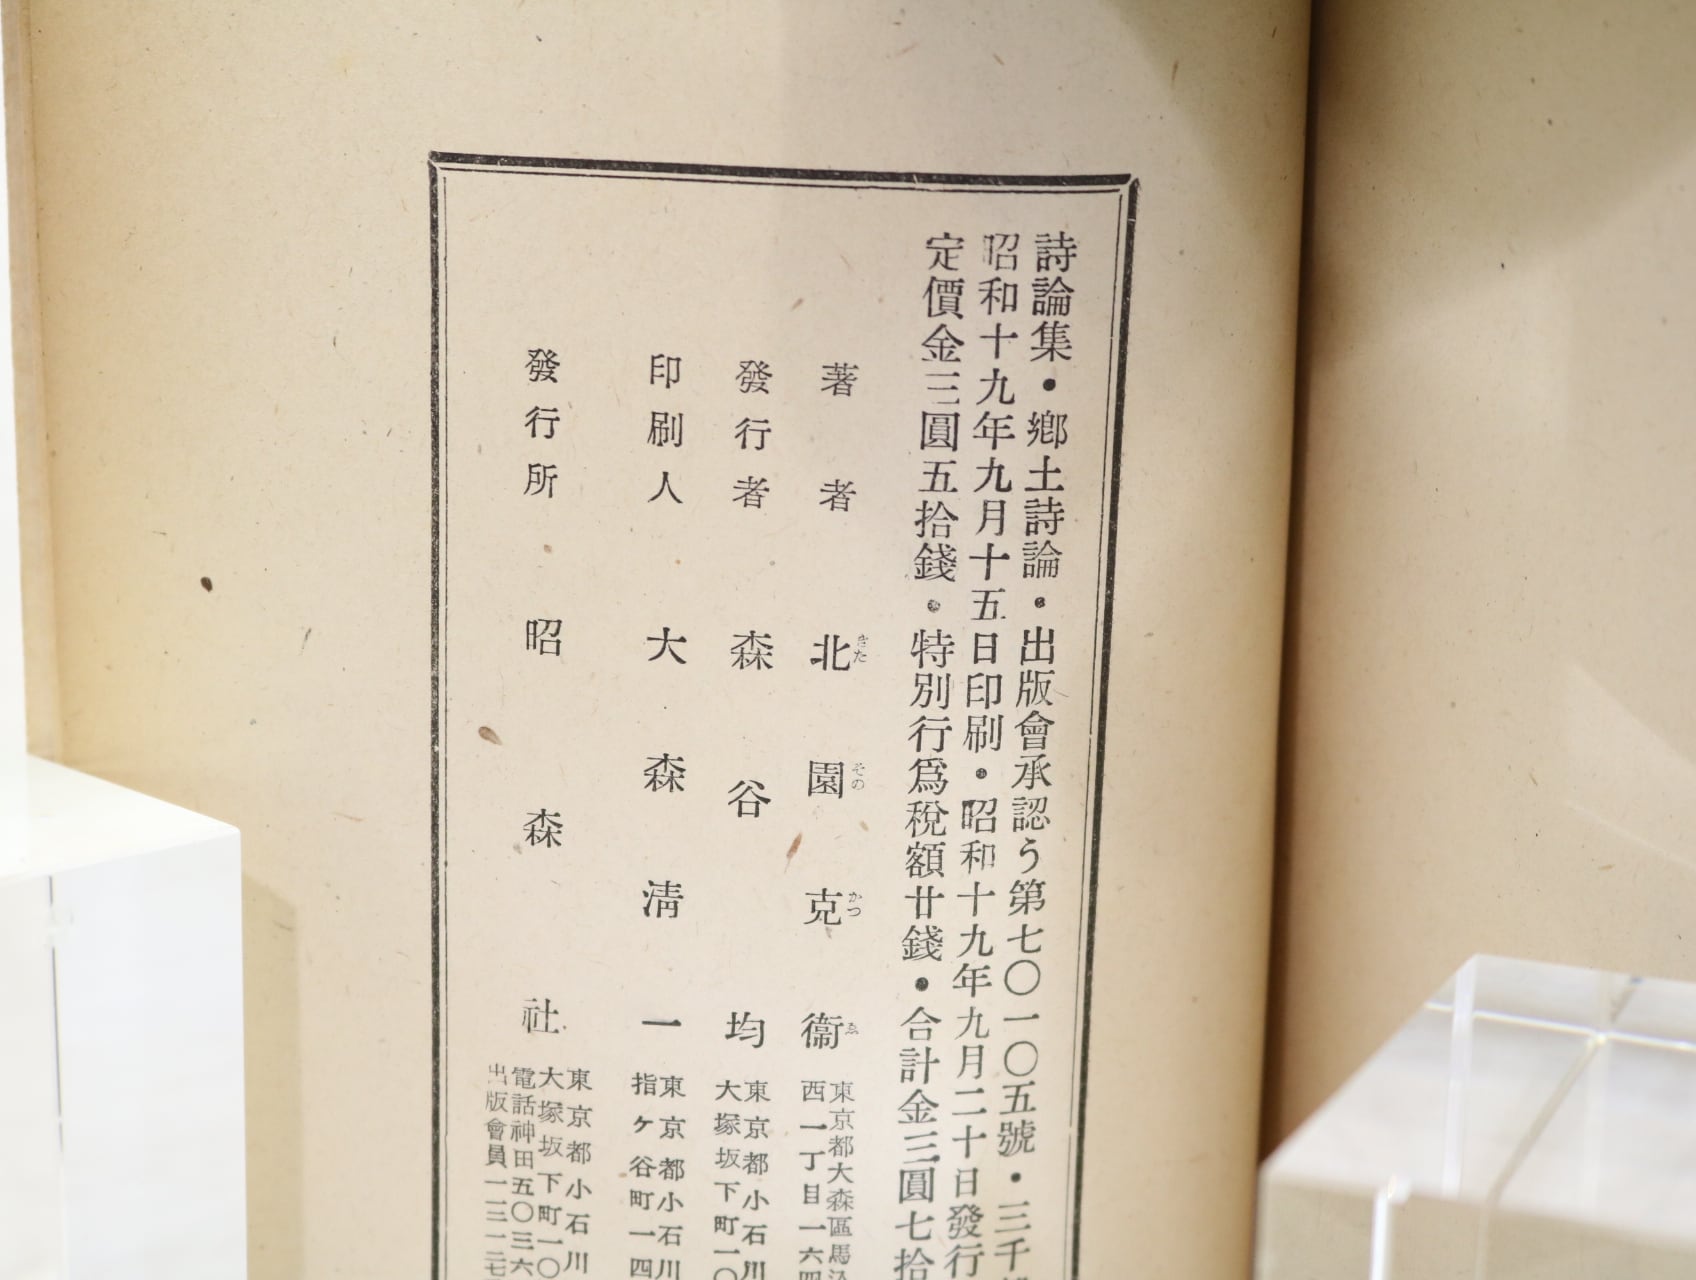 詩論集・鄕土詩論・出版會承認う第七〇一〇五號・三千
昭和十九年九月十五日印刷・昭和十九年九月二十日發行
定價金三圓五拾錢・特別行爲稅額廿錢・合計金三圓七拾
著者 北園克衞 東京都大森區馬込
きたそのかつゑ
西一丁目一六四
發行者 森谷均 東京都小石川
大塚坂下町一〇
印刷人 大森淸一 東京都小石川
指ヶ谷町一四
發行所 昭森社 東京都小石川
大塚坂下町一〇
電話神田五〇三六
出版會員一三一三七